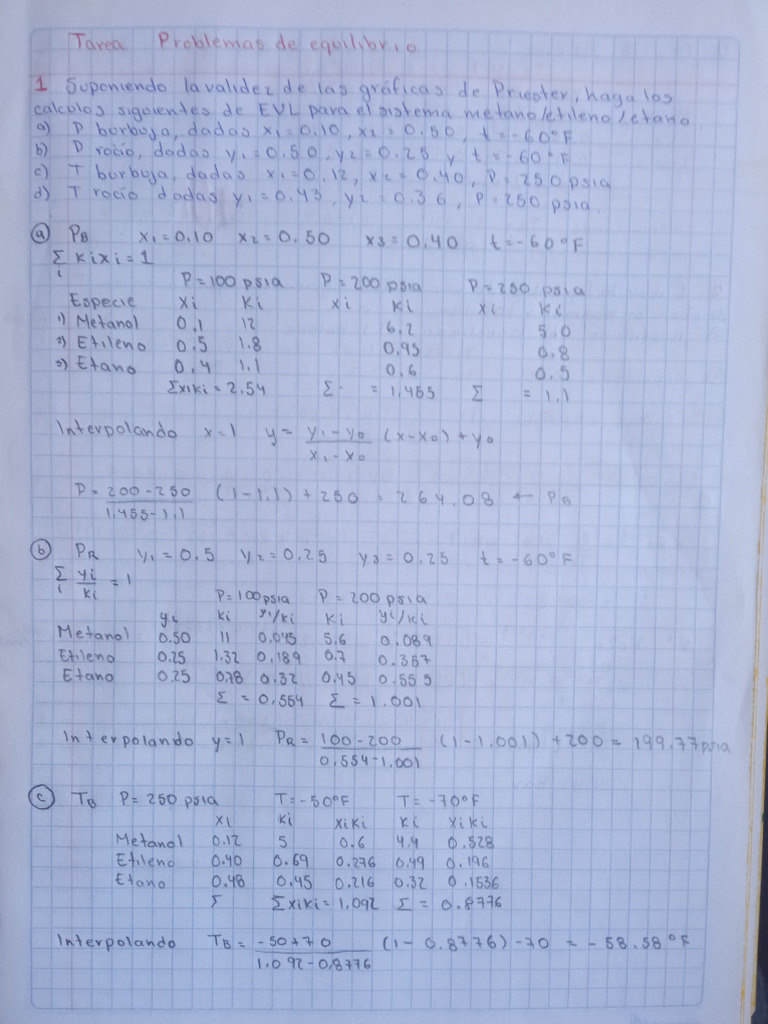 Tarea Problemas de equilibrio
1 Suponiendo la validez de las gráficas de Priester, haga los
calculos siguientes de EVL para el sistema metano/etileno/etano.
a) P burbuja, dadas x1=0.10, x2=0.50, t=-60°F
b) P rocío, dadas y1=0.50, y2=0.25 y t=-60°F
c) T burbuja, dadas x1=0.12, x2=0.40, P=250 psia
d) T rocío dadas y1=0.43, y2=0.36, P=250 psia.
a PB x1=0.10 x2=0.50 x3=0.40 t=-60°F
Σi kixi=1
P=100 psia P=200 psia P=250 psia
Especie xi ki xi ki xi ki
1) Metanol 0.1 12 6.2 5.0
2) Etileno 0.5 1.8 0.95 0.8
3) Etano 0.4 1.1 0.6 0.5
Σxiki=2.54 Σ = 1.455 Σ = 1.1
Interpolando x=1 y= y1-y0 / x1-x0 (x-x0)+y0
P= 200-250 / 1.455-1.1 (1-1.1)+250 = 264.08 ← PB
b PR y1=0.5 y2=0.25 y3=0.25 t=-60°F
Σi yi/ki =1
P=100psia P=200 psia
yi ki yi/ki ki yi/ki
Metanol 0.50 11 0.045 5.6 0.089
Etileno 0.25 1.32 0.189 0.7 0.357
Etano 0.25 0.78 0.32 0.45 0.555
Σ = 0.554 Σ = 1.001
Interpolando y=1 PR= 100-200 / 0.554-1.001 (1-1.001)+200 = 199.77psia
c TB P=250 psia T=-50°F T=-70°F
xi ki xiki ki xiki
Metanol 0.12 5 0.6 4.4 0.528
Etileno 0.40 0.69 0.276 0.49 0.196
Etano 0.48 0.45 0.216 0.32 0.1536
Σ Σxiki=1.092 Σ= 0.8776
Interpolando TB= -50+70 / 1.092-0.8776 (1-0.8776)-70 = -58.58°F